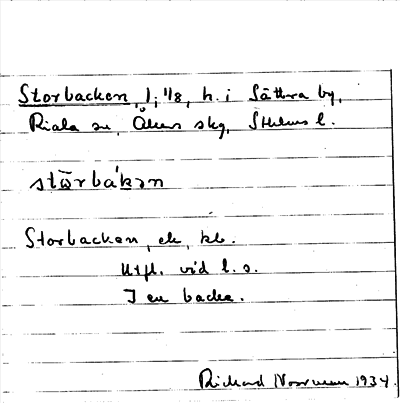 Storbacken, l, 1/8, h. i Sättra by,
Riala sn, Åkers skg, Sthlms l.
störbákən
Storbacken, ek, kb.
Utfl. vid l. s.
I en backe.
Rickard Norrman 1934.